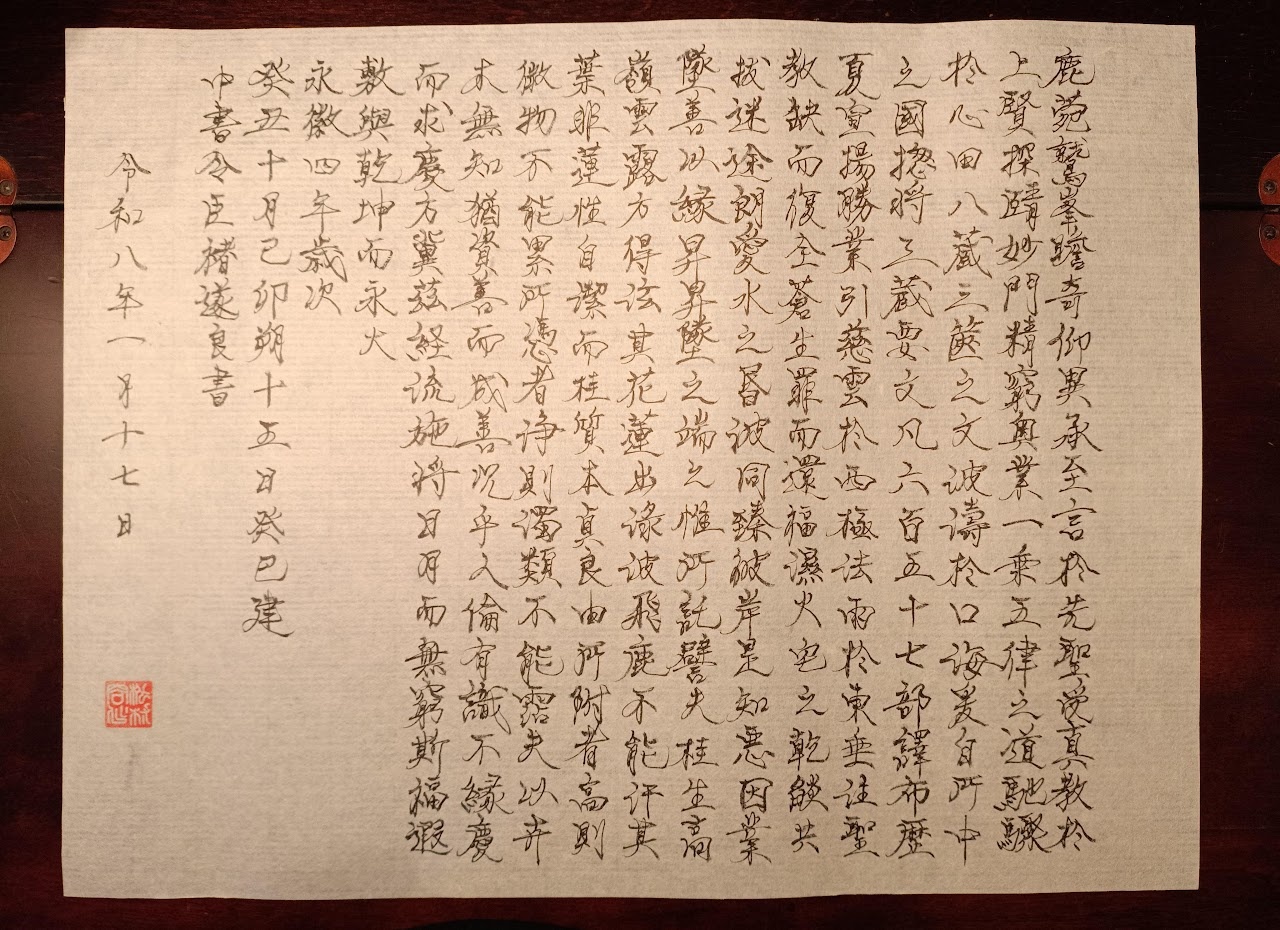 鹿菀鷲峯瞻奇仰異承至言於先聖受真教於
上賢探賾妙門精窮奥業一乗五律之道馳驟
於心田八蔵三篋之文波濤於口海爰自所中
之國捴将三蔵要文凡六百五十七部譯布歴
夏宣揚勝業引慈雲於西極法雨於東垂注聖
教缺而復全蒼生罪而還福濕火宅之乾燄共
拔迷途朗愛水之昬波同臻彼岸是知悪因業
墜善以縁昇昇墜之端之惟所託譬夫桂生高
嶺雲露方得泫其花蓮出淥波飛塵不能汙其
葉非蓮性自潔而桂質本貞良由所附者高則
微物不能累所憑者浄則濁類不能霑夫以卉
木無知猶資善而成善況乎人倫有識不縁慶
而求慶方冀兹経流施将日月而無窮斯福遐
敷與乾坤而永大
永徽四年歳次
癸丑十月己卯朔十五日癸巳建
中書令臣褚遂良書
令和八年一月十七日